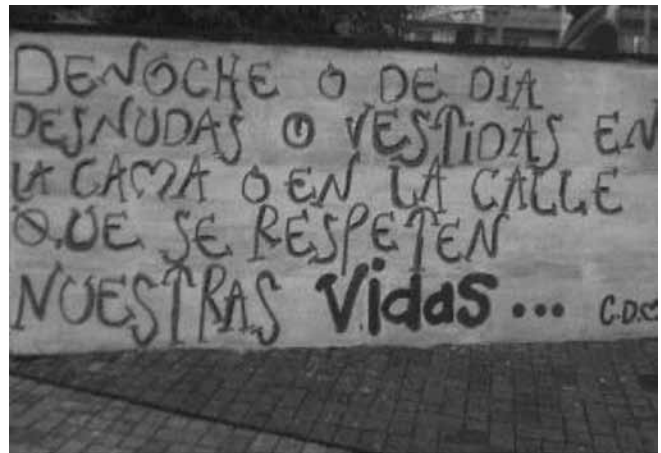 DE NOCHE O DE DIA
DESNUDAS O VESTIDAS EN
LA CAMA O EN LA CALLE
QUE SE RESPETEN
NUESTRAS Vidas... C.D.